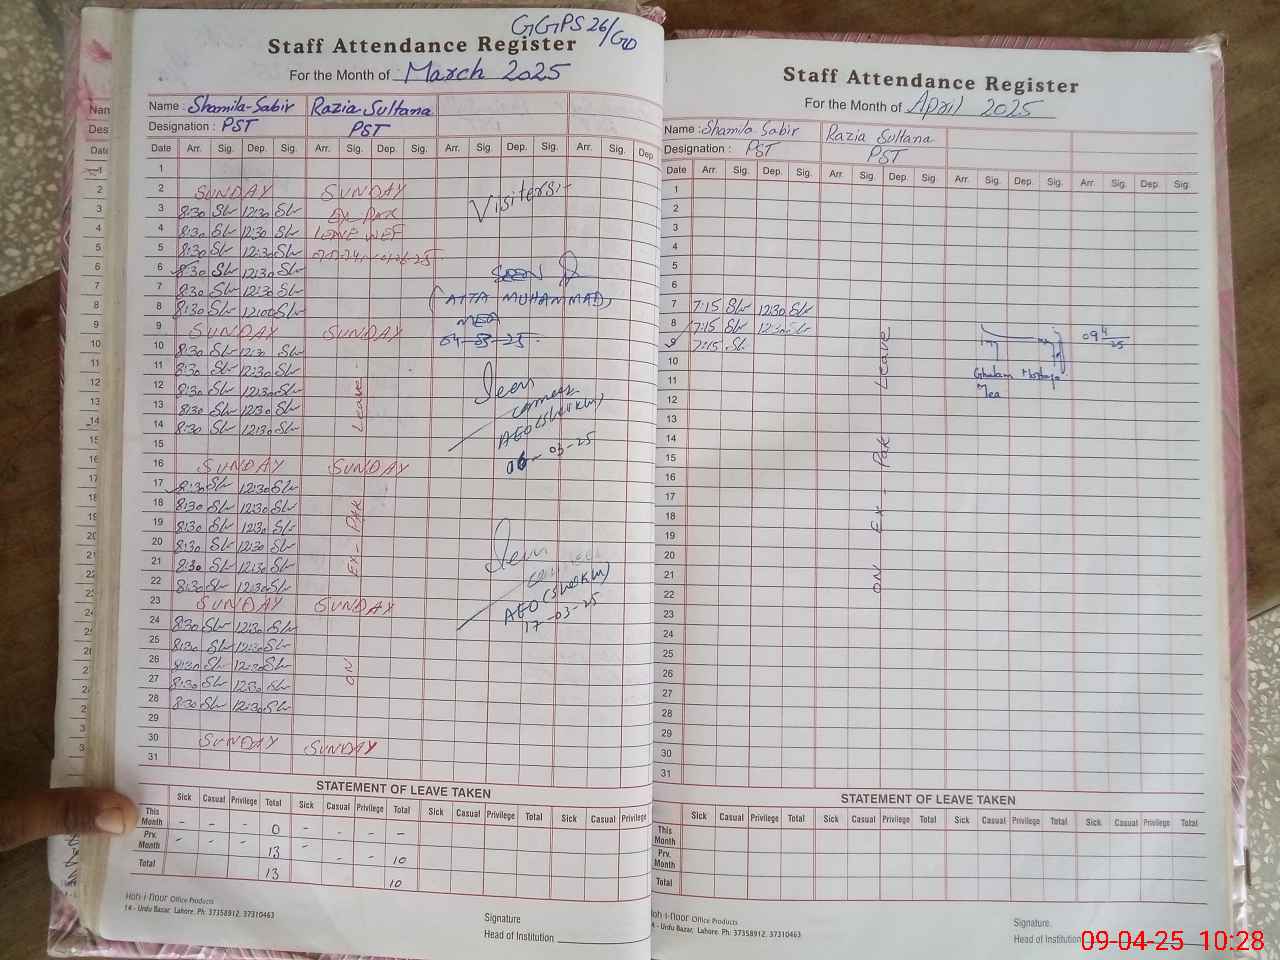 GGPS 26/GD
Staff Attendance Register
For the Month of March 2025
Name : Shamila Sabir Razia Sultana
Designation : PST PST
Date Arr. Sig. Dep. Sig. Arr. Sig. Dep. Sig. Arr. Sig. Dep. Sig. Arr. Sig. Dep.
1
2 SUNDAY SUNDAY
3 8:30 Sh 12:30 Sh EX-PAK
4 8:30 Sh 12:30 Sh LEAVE WEF
5 8:30 Sh 12:30 Sh
6 8:30 Sh 12:30 Sh
7 8:30 Sh 12:30 Sh
8 8:30 Sh 12:00 Sh
9 SUNDAY SUNDAY
10 8:30 Sh 12:30 Sh
11 8:30 Sh 12:30 Sh
12 8:30 Sh 12:30 Sh
13 8:30 Sh 12:30 Sh
14 8:30 Sh 12:30 Sh
15
16 SUNDAY SUNDAY
17 8:30 Sh 12:30 Sh
18 8:30 Sh 12:30 Sh
19 8:30 Sh 12:30 Sh
20 8:30 Sh 12:30 Sh
21 8:30 Sh 12:30 Sh
22 8:30 Sh 12:30 Sh
23 SUNDAY SUNDAY
24 8:30 Sh 12:30 Sh
25 8:30 Sh 12:30 Sh
26 8:30 Sh 12:30 Sh
27 8:30 Sh 12:30 Sh
28 8:30 Sh 12:30 Sh
29
30 SUNDAY SUNDAY
31
ON EX-PAK Leave
Visiters:-
SEEN
(ATTA MUHAMMAD)
MEA
04-03-25
Seen
AEO
06-03-25
Seen
AEO
17-03-25
STATEMENT OF LEAVE TAKEN
Sick Casual Privilege Total Sick Casual Privilege Total Sick Casual Privilege Total Sick Casual Privilege
This Month - - - 0 - - - -
Prv. Month - - - 13 - - - 10
Total 13 10
Hoh-i-Noor Office Products
14 - Urdu Bazar, Lahore. Ph: 37358912, 37310463
Signature
Head of Institution
Staff Attendance Register
For the Month of April 2025
Name : Shamila Sabir Razia Sultana
Designation : PST PST
Date Arr. Sig. Dep. Sig. Arr. Sig. Dep. Sig. Arr. Sig. Dep. Sig. Arr. Sig. Dep. Sig.
1
2
3
4
5
6
7 7:15 Sh 12:30 Sh
8 7:15 Sh 12:30 Sh
9 7:15 Sh
10
11
12
13
14
15
16
17
18
19
20
21
22
23
24
25
26
27
28
29
30
31
ON EX-PAK Leave
09 4/25
Ghulam Murtaza
Mea
STATEMENT OF LEAVE TAKEN
Sick Casual Privilege Total Sick Casual Privilege Total Sick Casual Privilege Total Sick Casual Privilege Total
This Month
Prv. Month
Total
Hoh-i-Noor Office Products
- Urdu Bazar, Lahore. Ph: 37358912, 37310463
Signature.
Head of Institution
09-04-25 10:28